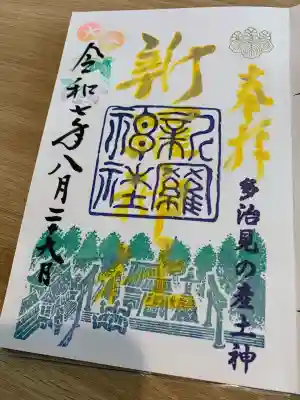 奉拝
多治見の産土神
新
新羅神社
令和七年八月二十九日